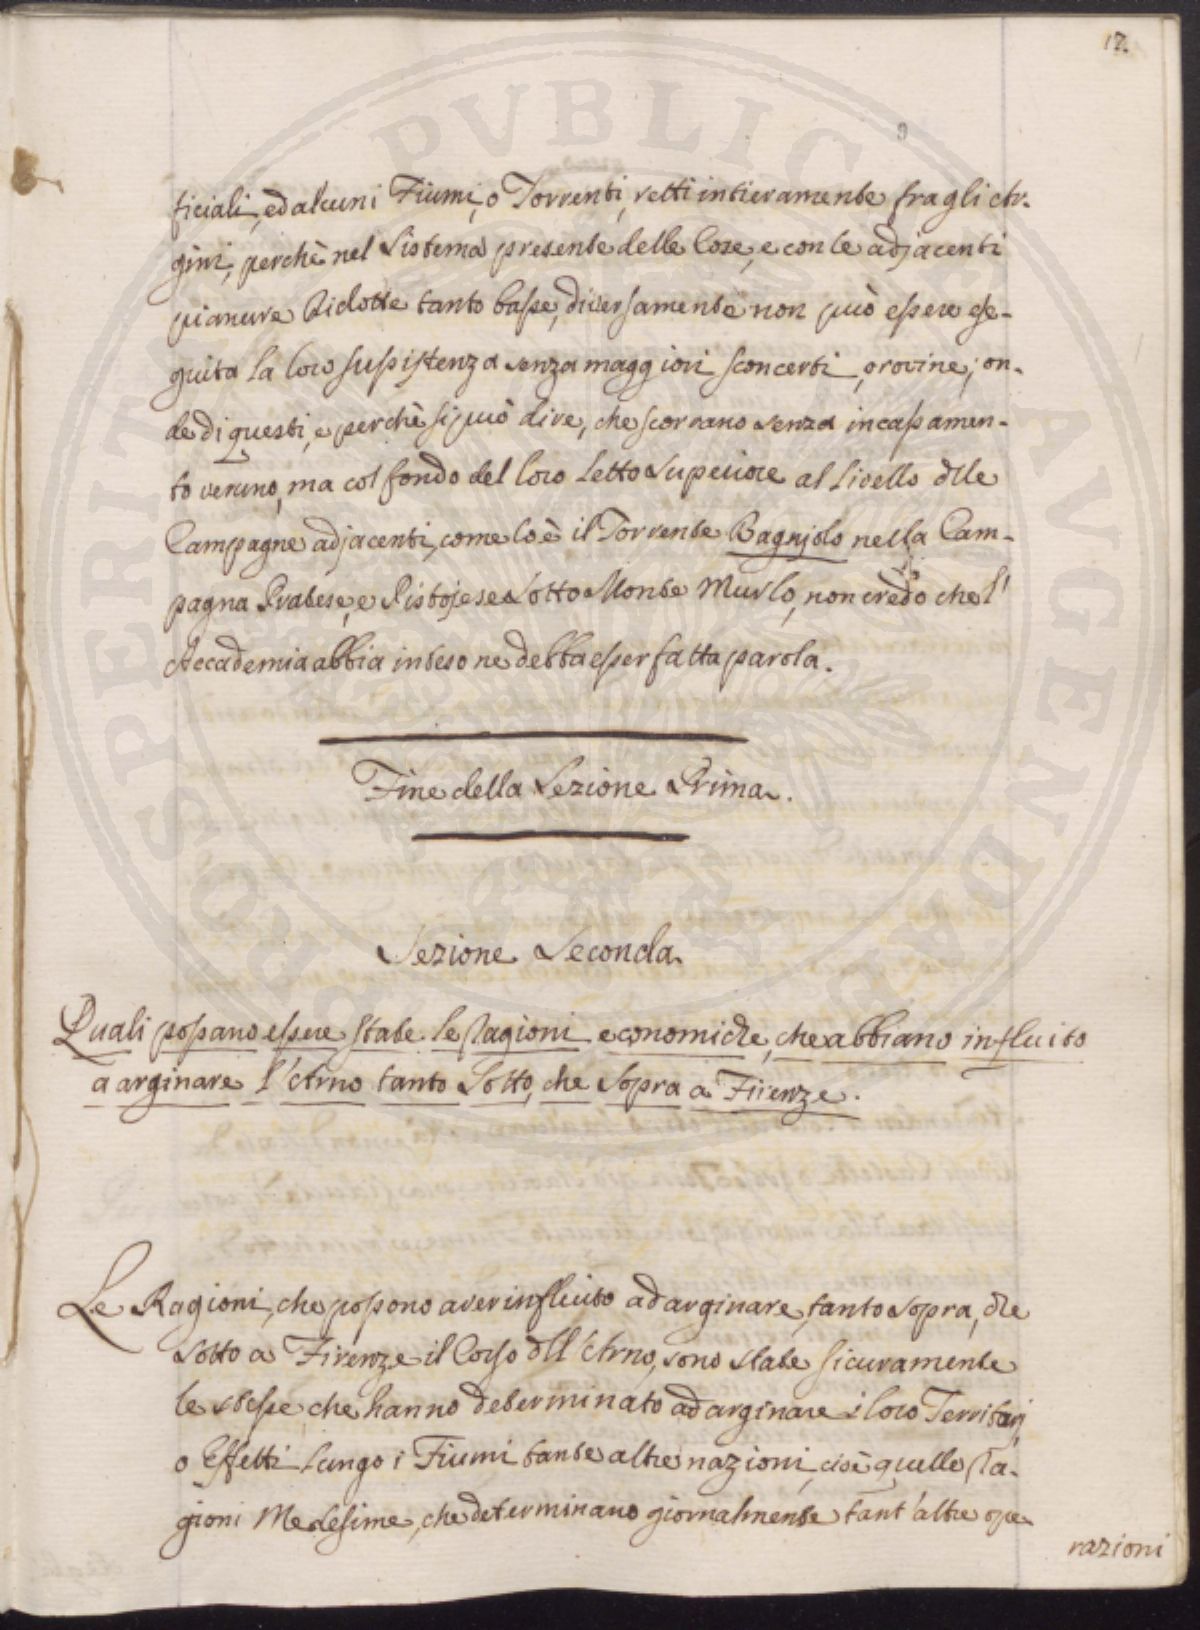 17.
9
ficiali, ed alcuni Fiumi, o Torrenti, retti intieramente fra gli Ar-
gini, perchè nel Sistema presente delle Cose, e con le adjacenti
pianure Ridotte tanto basse, diversamente non può essere ese-
guita la loro sussistenza senza maggiori sconcerti, o rovine; on-
de di questi, e perchè si può dire, che scorrano senza incassamen-
to veruno, ma col fondo del loro Letto Superiore al Livello dlle
Campagne adjacenti, come lo è il Torrente Bagnjolo nella Cam-
pagna Pratese, e Pistojese Sotto Monte Murlo, non credo che l'
Accademia abbia inteso ne debba esser fatta parola.
Fine della Sezione Prima.
Sezione Seconda.
Quali possano essere state le Ragioni economiche, che abbiano influito
a arginare l'Arno tanto Sotto, che Sopra a Firenze.
Le Ragioni, che possono aver influito ad arginare, tanto sopra, che
sotto a Firenze il Corso dll'Arno, sono state sicuramente
le stesse che hanno determinato ad arginare i loro Territorj
o Effetti lungo i Fiumi tante altre nazioni, cioè quelle Ra-
gioni Medesime, che determinano giornalmente tant'altre ope-
razioni
PROSPERITATI PVBLICAE AVGENDAE